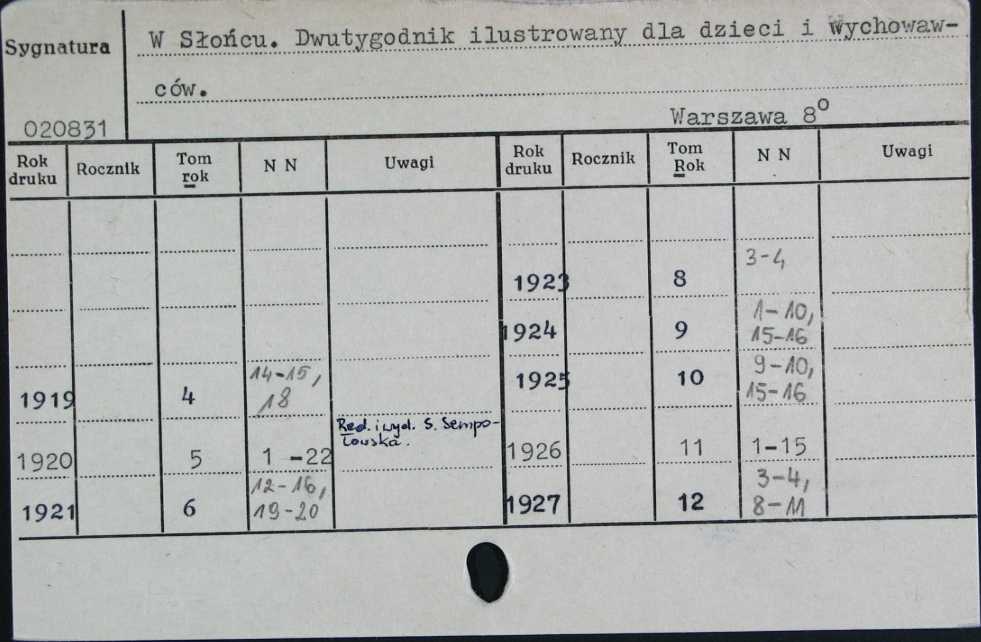 Sygnatura
W Słońcu. Dwutygodnik ilustrowany dla dzieci i wychowaw-
ców.
020831
Warszawa 8°
Rok druku Rocznik Tom rok N N Uwagi Rok druku Rocznik Tom Rok N N Uwagi
1923 8 3-4
1924 9 1-10, 15-16
1919 4 14-15, 18
1925 10 9-10, 15-16
1920 5 1 -22 Red. i wyd. S. Sempo-
łowska.
1926 11 1-15
1921 6 12-16, 19-20
1927 12 3-4, 8-11